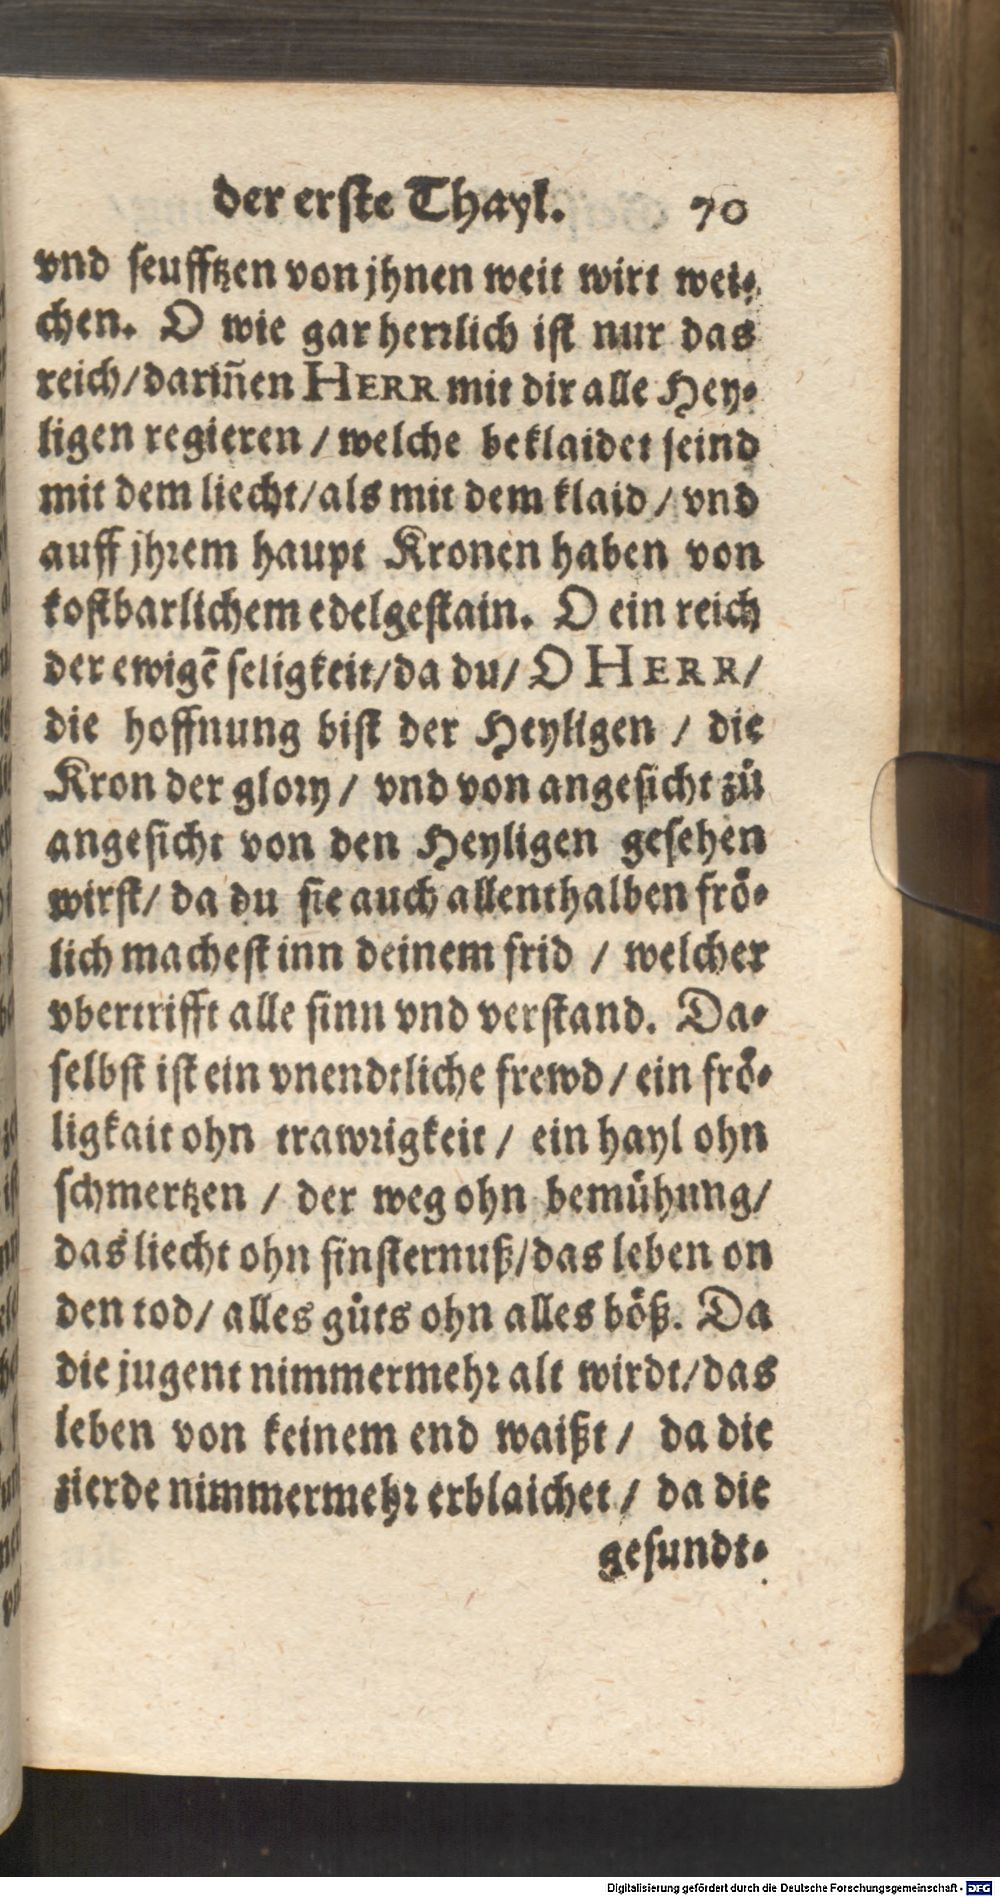 der erste Thayl. 70
vnd seufftzen von jhnen weit wirt wei-
chen. O wie gar herrlich ist nur das
reich/dariñen HERR mit dir alle Hey-
ligen regieren / welche beklaidet seind
mit dem liecht/als mit dem klaid / vnd
auff jhrem haupt Kronen haben von
kostbarlichem edelgestain. O ein reich
der ewigẽ seligkeit/da du/ O HERR/
die hoffnung bist der Heyligen / die
Kron der glory / vnd von angesicht zů
angesicht von den Heyligen gesehen
wirst/ da du sie auch allenthalben frö-
lich machest inn deinem frid / welcher
vbertrifft alle sinn vnd verstand. Da-
selbst ist ein vnendtliche frewd / ein frö-
ligkait ohn trawrigkeit / ein hayl ohn
schmertzen / der weg ohn bemühung/
das liecht ohn finsternuß/das leben on
den tod/ alles gůts ohn alles böß. Da
die jugent nimmermehr alt wirdt/das
leben von keinem end waißt / da die
zierde nimmermehr erblaichet / da die
gesundt-
Digitalisierung gefördert durch die Deutsche Forschungsgemeinschaft - DFG